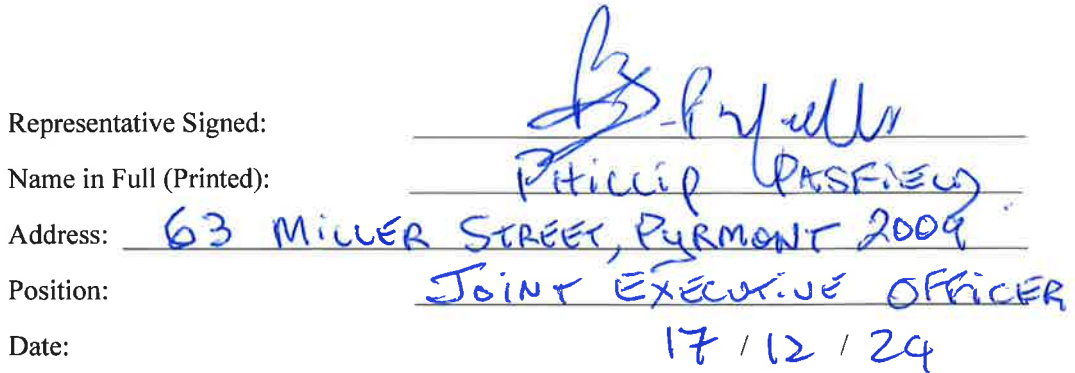 Representative Signed:
Name in Full (Printed): PHILLIP PASFIELD
Address: 63 MILLER STREET, PYRMONT 2009
Position: JOINT EXECUTIVE OFFICER
Date: 17 / 12 / 24